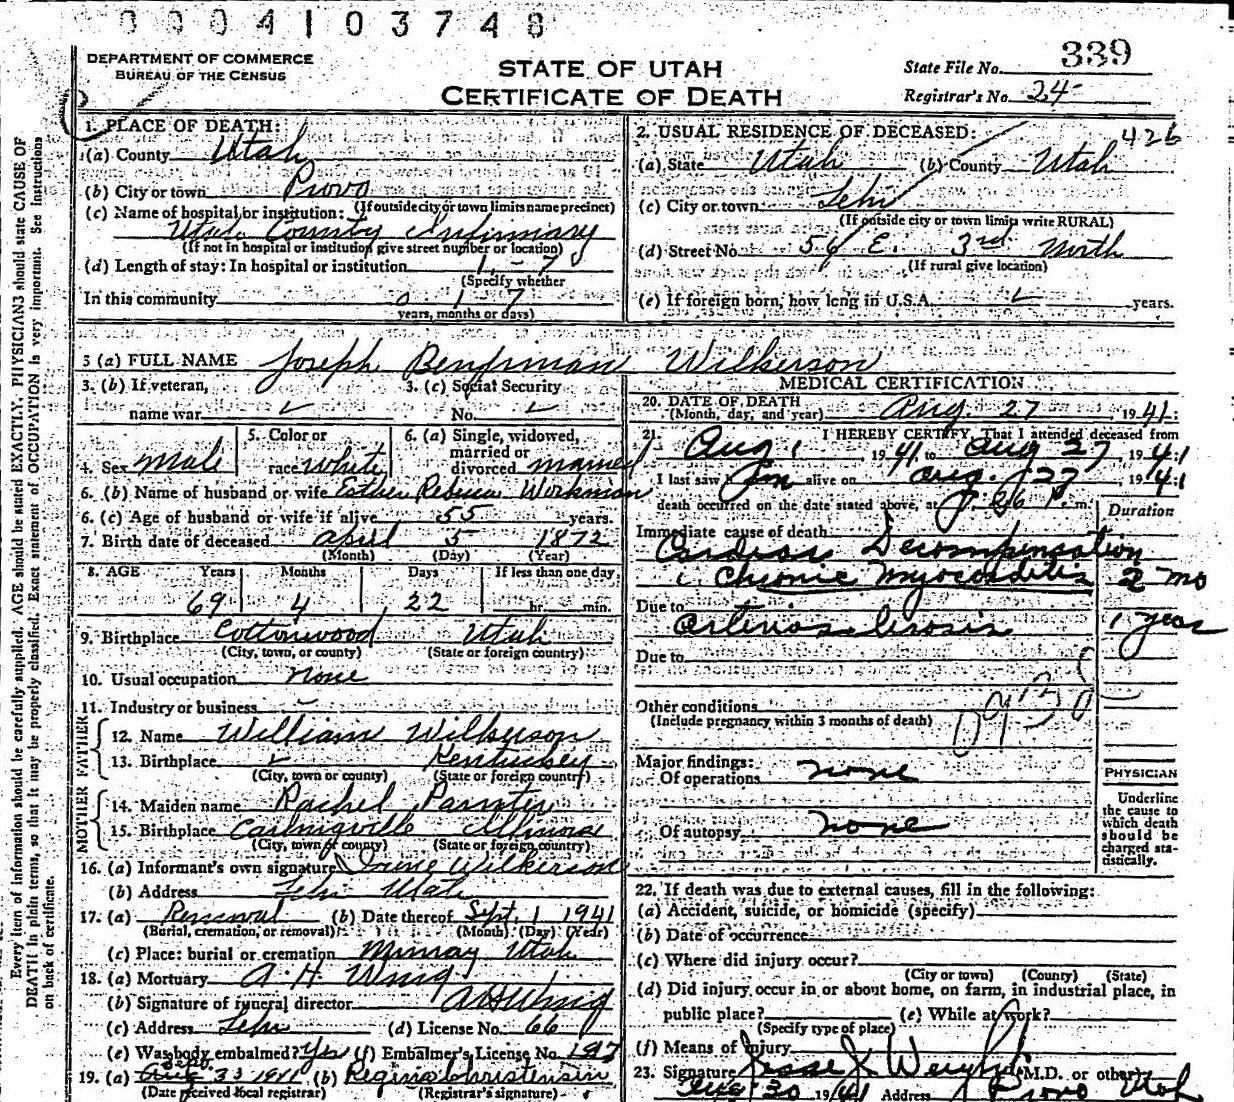 0004103748
DEPARTMENT OF COMMERCE
BUREAU OF THE CENSUS
STATE OF UTAH
CERTIFICATE OF DEATH
State File No. 339
Registrar's No. 24
Every item of information should be carefully supplied. AGE should be stated EXACTLY. PHYSICIANS should state CAUSE OF
DEATH in plain terms, so that it may be properly classified. Exact statement of OCCUPATION is very important. See Instructions
on back of certificate.
1. PLACE OF DEATH:
(a) County Utah
(b) City or town Provo
(If outside city or town limits name precinct)
(c) Name of hospital or institution:
Utah County Infirmary
(If not in hospital or institution give street number or location)
(d) Length of stay: In hospital or institution 1 - 7
(Specify whether
In this community 0 1 7
years, months or days)
2. USUAL RESIDENCE OF DECEASED: 426
(a) State Utah (b) County Utah
(c) City or town Lehi
(If outside city or town limits write RURAL)
(d) Street No. 56 E. 3rd North
(If rural give location)
(e) If foreign born, how long in U.S.A. years.
3 (a) FULL NAME Joseph Benjiman Wilkerson
3. (b) If veteran,
name war
3. (c) Social Security
No.
4. Sex Male
5. Color or
race White
6. (a) Single, widowed,
married or
divorced married
6. (b) Name of husband or wife Esther Rebecca Workman
6. (c) Age of husband or wife if alive 55 years.
7. Birth date of deceased April 5 1872
(Month) (Day) (Year)
8. AGE Years Months Days If less than one day
69 4 22 hr. min.
9. Birthplace Cottonwood Utah
(City, town, or county) (State or foreign country)
10. Usual occupation none
11. Industry or business -
FATHER
12. Name William Wilkerson
13. Birthplace Kentuckey
(City, town or county) (State or foreign country)
MOTHER
14. Maiden name Rachel
15. Birthplace Illinois
(City, town or county) (State or foreign country)
16. (a) Informant's own signature Irene Wilkerson
(b) Address Lehi Utah
17. (a) Removal (b) Date thereof Sept. 1 1941
(Burial, cremation, or removal) (Month) (Day) (Year)
(c) Place: burial or cremation Murray Utah
18. (a) Mortuary A. H. Wing
(b) Signature of funeral director A H Wing
(c) Address Lehi (d) License No. 66
(e) Was body embalmed? Yes (f) Embalmer's License No. 197
19. (a) Sept. 1941 (b) Regina Christensen
(Date received local registrar) (Registrar's signature)
MEDICAL CERTIFICATION
20. DATE OF DEATH
(Month, day, and year) Aug. 27 1941
21. I HEREBY CERTIFY, That I attended deceased from
Aug 1, 1941 to Aug 27, 1941
I last saw him alive on Aug. 27 1941
death occurred on the date stated above, at P. m.
Duration
Immediate cause of death
Cardiac Decompensation
Chronic Myocarditis 2 mo
Due to
Arteriosclerosis 1 year
Due to
Other conditions
(Include pregnancy within 3 months of death)
Major findings:
Of operations none
Of autopsy none
PHYSICIAN
Underline
the cause to
which death
should be
charged sta-
tistically.
22. If death was due to external causes, fill in the following:
(a) Accident, suicide, or homicide (specify)
(b) Date of occurrence
(c) Where did injury occur?
(City or town) (County) (State)
(d) Did injury occur in or about home, on farm, in industrial place, in
public place? (e) While at work?
(Specify type of place)
(f) Means of injury
23. Signature Jesse J Weight (M.D. or other)
Aug 30 1941 Address Provo Utah